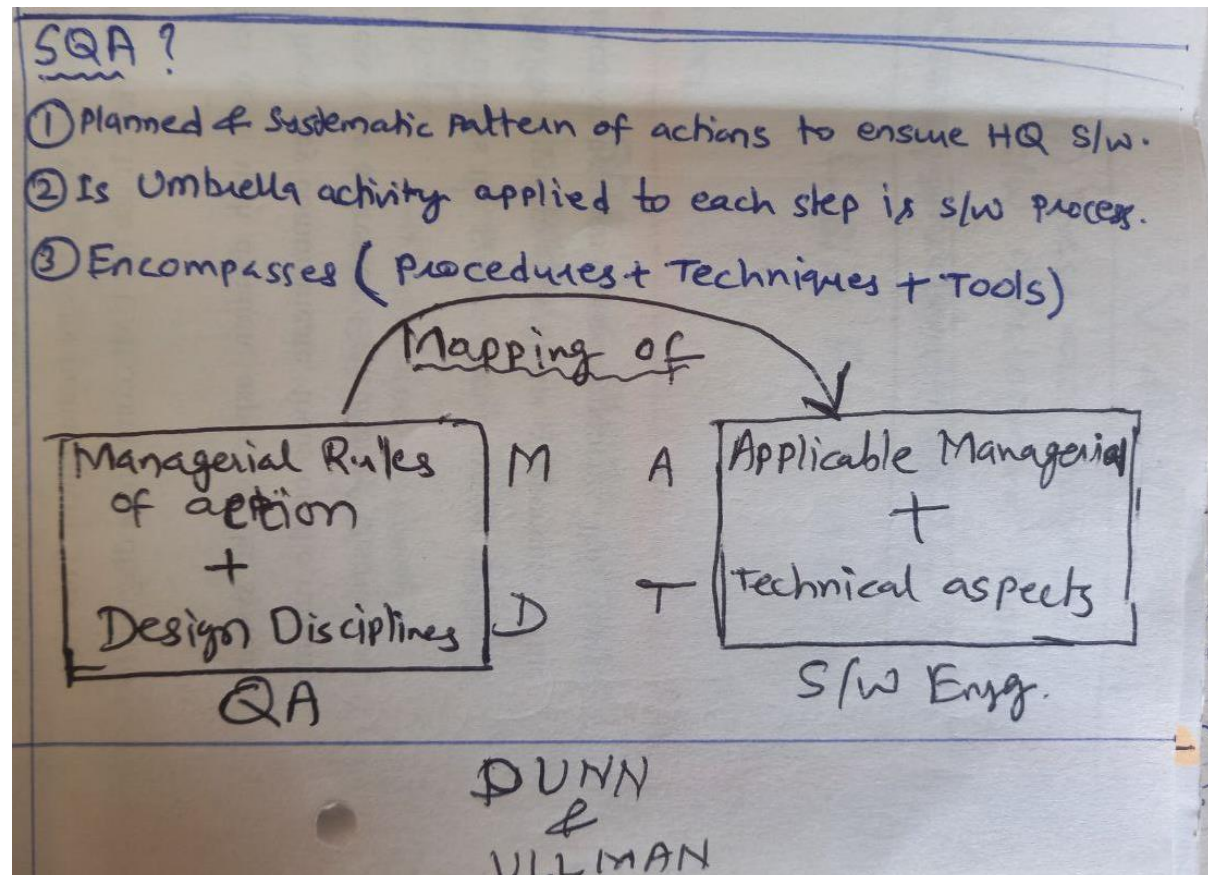 SQA ?
① Planned & Systematic Pattern of actions to ensure HQ S/W.
② Is Umbrella activity applied to each step is s/w process.
③ Encompasses ( Procedures + Techniques + Tools)
Mapping of
Managerial Rules
of action
+
Design Disciplines
QA
M A
D T
Applicable Managerial
+
Technical aspects
S/W Engg.
DUNN
&
ULLMAN